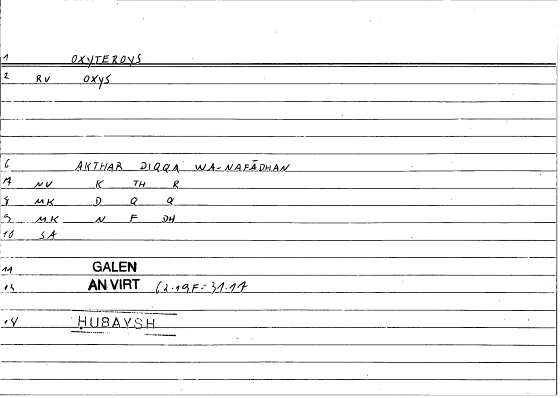 1 OXYTEROYS
2 RV OXYS
6 AKTHAR DIQQA WA-NAFĀDHAN
7 NV K TH R
8 MK D Q Q
9 MK N F DH
10 SA
11 GALEN
13 AN VIRT
14 ḤUBAYSH